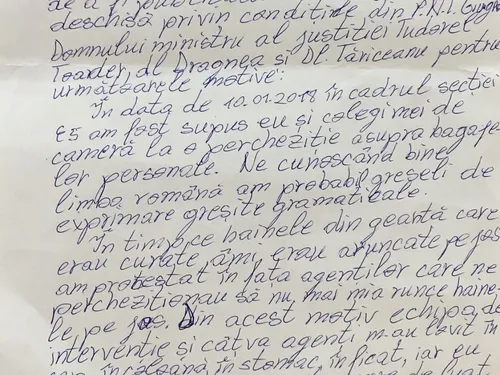 de a fi
deschisă privin condițiile din P.N.T. Giurgiu
Domnului ministru al justiției Tudorel
Toader, dl Dragnea și Dl. Tăriceanu pentru
următoarele motive:
În data de 10.01.2018 în cadrul secției
E5 am fost supus eu și colegii mei de
cameră la o percheziție asupra bagaje
lor personale. Ne cunoscând bine
limba română am probabil greșeli de
exprimare greșite gramaticale.
În timp ce hainele din geantă care
erau curate îmi erau aruncate pe jos
am protestat în fața agenților care ne
percheziționau să nu mai mia runce haine-
le pe jos. Din acest motiv echipa de
intervenție și câtva agenți m-au lovit în
în stomac, în ficat, iar eu